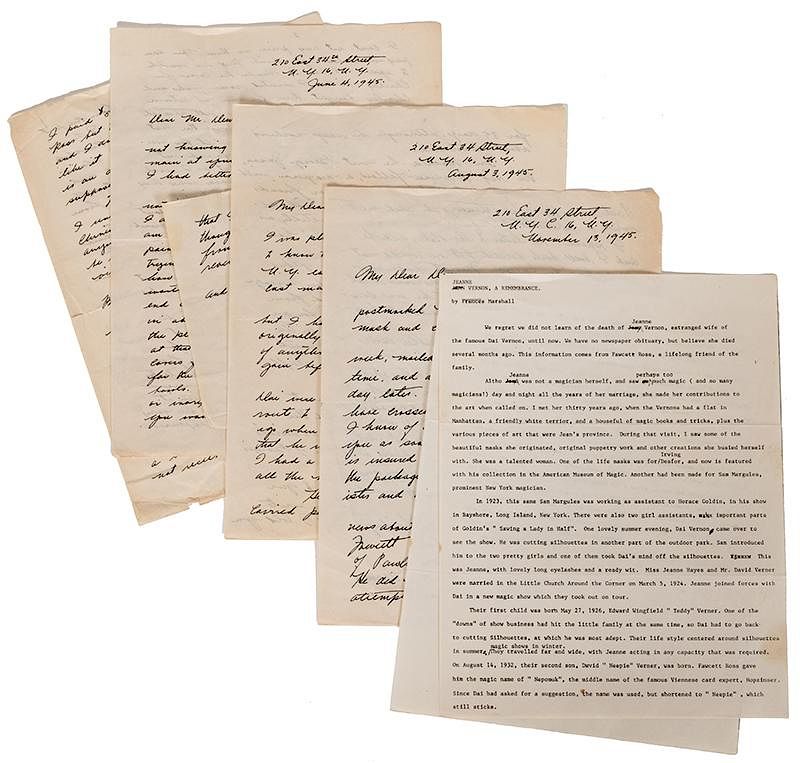 I paid $
pess but
and I do
like it
is an a
suppose
I w
Chines
any
be
ver
a
not receiv
210 East 34th Street,
N.Y. 16, N.Y.
June 4, 1945.
Dear Mr. Des
not knowing
main at your
I had bette
now
I a
am
pain
tryin
how
want
end
in as
the pe
at tha
cover
for the
tools.
or incor
you was
that
though
from
rece
and
210 East 34 Street,
N.Y. 16, N.Y.
August 3, 1945.
My Dear
I was ple
to know
N.Y. ea
east ma
but I ha
originally
of anyth
gain
Dai were
route to
ago when
that he i
I had a
all the
carried p
210 East 34 Street,
N.Y.C. 16, N.Y.
November 13, 1945.
My Dear D
postmarked
mask and
week, mailed
time, and a
day later.
have crosse
I know of
you as soon
is insured
the package
isters and
news abou
Fawcett
of Paul
He did
attemp
JEANNE
VERNON, A REMEMBRANCE.
by Frances Marshall
Jeanne
We regret we did not learn of the death of Vernon, estranged wife of
the famous Dai Vernon, until now. We have no newspaper obituary, but believe she died
several months ago. This information comes from Fawcett Ross, a lifelong friend of the
family.
Jeanne perhaps too
Altho was not a magician herself, and saw much magic ( and no many
magicians!) day and night all the years of her marriage, she made her contributions to
the art when called on. I met her thirty years ago, when the Vernons had a flat in
Manhattan, a friendly white terrior, and a houseful of magic books and tricks, plus the
various pieces of art that were Jean's province. During that visit, I saw some of the
beautiful masks she originated, original puppetry work and other creations she busied herself
Irving
with. She was a talented woman. One of the life masks was for/Desfor, and now is featured
with his collection in the American Museum of Magic. Another had been made for Sam Margules,
prominent New York magician.
In 1923, this same Sam Margules was working as assistant to Horace Goldin, in his show
in Bayshore, Long Island, New York. There were also two girl assistants, important parts
of Goldin's " Sawing a Lady in Half". One lovely summer evening, Dai Vernon, came over to
see the show. He was cutting silhouettes in another part of the outdoor park. Sam introduced
him to the two pretty girls and one of them took Dai's mind off the silhouettes. This
was Jeanne, with lovely long eyelashes and a ready wit. Miss Jeanne Hayes and Mr. David Verner
were married in the Little Church Around the Corner on March 5, 1924. Jeanne joined forces with
Dai in a new magic show which they took out on tour.
Their first child was born May 27, 1926, Edward Wingfield " Teddy" Verner. One of the
"downs" of show business had hit the little family at the same time, so Dai had to go back
to cutting Silhouettes, at which he was most adept. Their life style centered around silhouettes
magic shows in winter.
in summer, They travelled far and wide, with Jeanne acting in any capacity that was required.
On August 14, 1932, their second son, David " Neepie" Verner, was born. Fawcett Ross gave
him the magic name of " Nepomuk", the middle name of the famous Viennese card expert, Hopzinser.
Since Dai had asked for a suggestion, the name was used, but shortened to " Neepie" , which
still sticks.